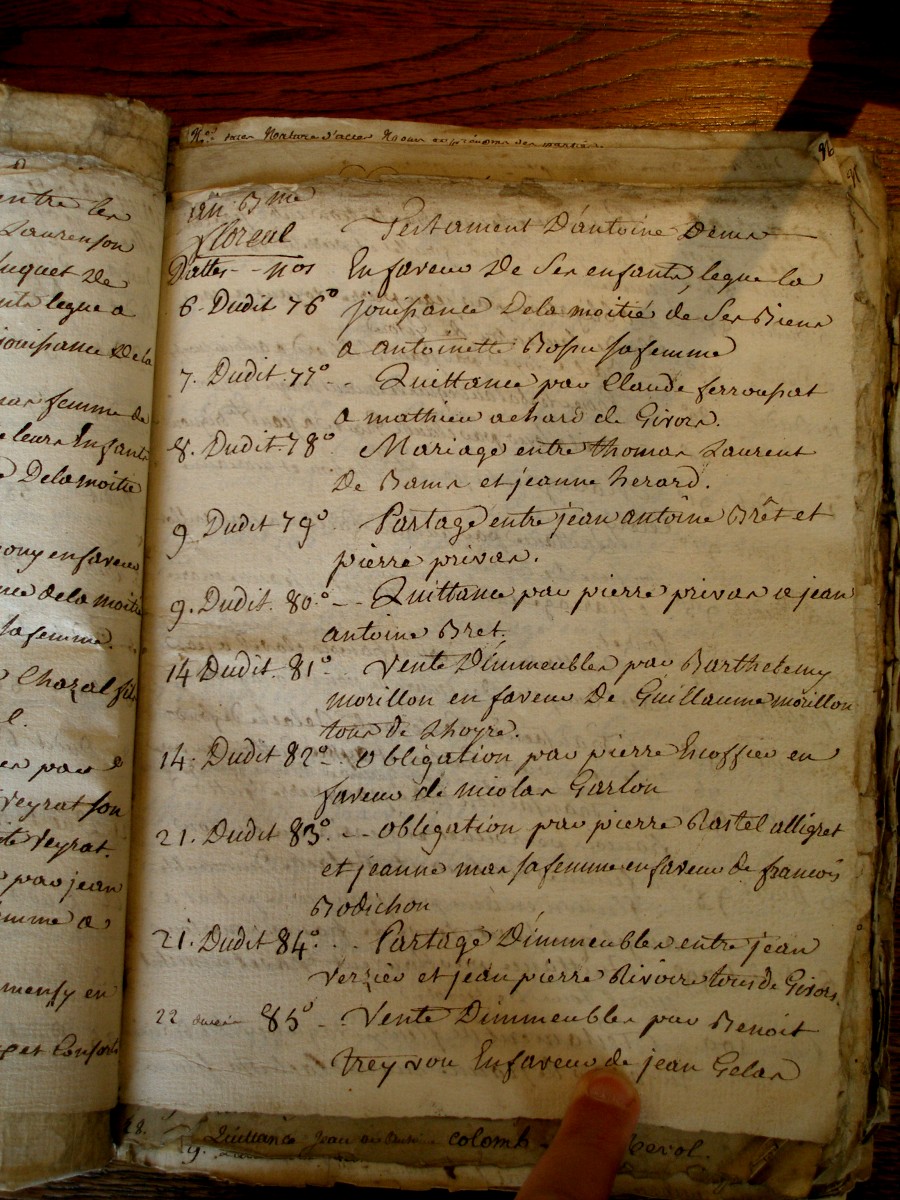 entre les
Laurenson
uquet de
nte legue a
jouissance de la
mar femme de
e leurs Enfants
Dela moitié
ouy en faveur
nce dela moitié
sa femme.
Chazal fils
l.
er par
veyrat son
te veyrat.
par jean
emme a
mensy en
et Consorts
Nos Nature d'actes Noms et prénoms des parties.
96
an 8me
floreal
Dattes -- nos
Testament D'antoine Demar
En faveur de Ses enfants, legue la
6. Dudit 76° jouissance Dela moitié de Ses Biens
a antoinette Bossu sa femme
7. Dudit 77° .. Quittance par Claude ferroussat
a mathieu achard de Givors.
8. Dudit. 78° Mariage entre thomas Laurent
de Bans et jeanne herard.
9. Dudit 79° Partage entre jean antoine Brêt et
pierre privas.
9. Dudit. 80.° -- Quittance par pierre privas a jean
antoine Bret.
14 Dudit. 81° Vente D'immeubles par Barthelemy
morillon en faveur De Guillaume morillon
tous de Lhoyre.
14. Dudit 82° -. Obligation par pierre Escoffier en
faveur de nicolas Garlon
21. Dudit 83.° -- obligation par pierre Rastel alligret
et jeanne mas sa femme en faveur de francois
Bodichon
21. Dudit 84.° .. Partage D'immeubles entre jean
Verzier et jean pierre Rivoire tous de Givors.
22 dudit 85° -. Vente D'immeubles par Benoit
treyvou En faveur de jean Gelas
28. Quittance Jean colomb
9.